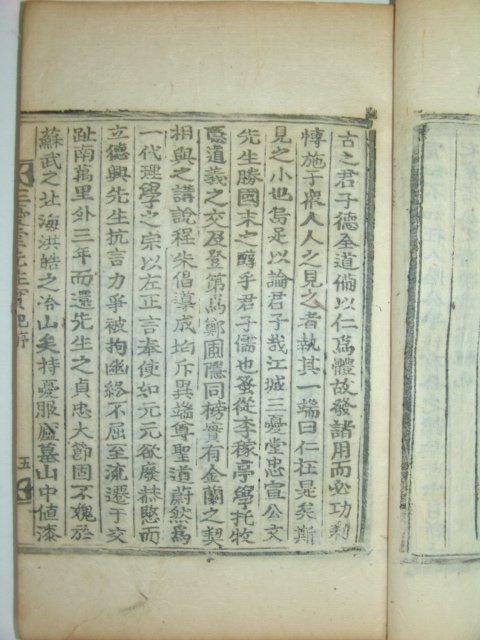 古之君子德全道備以仁爲體故發諸用而必功利
愽施于衆人人之見之者執其一端曰仁在是矣斯
見之小也烏足以論君子哉江城三憂堂忠宣公文
先生勝國末之醇乎君子儒也蚤從李稼亭學托牧
隱道義之交及登第爲鄭圃隱同榜實有金蘭之契
相與之講說程朱倡導成均斥異端尊聖道蔚然爲
一代理學之宗以左正言奉使如元元欲廢恭愍而
立德興先生抗言力爭被拘幽終不屈至流遷于交
趾南萬里外三年而還先生之貞忠大節固不愧於
蘇武之北海洪皓之冷山矣持憂服廬墓山中値漆
三憂堂先生實記序
五